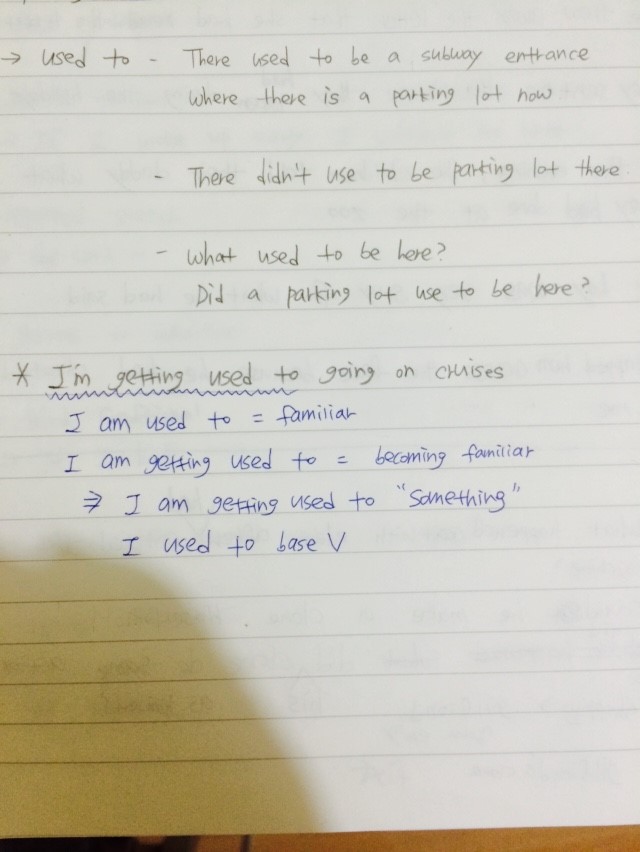 → used to - There used to be a subway entrance
where there is a parking lot now
- There didn't use to be parking lot there.
- what used to be here?
Did a parking lot use to be here?
* I'm getting used to going on cruises
I am used to = familiar
I am getting used to = becoming familiar
⇒ I am getting used to "Something"
I used to base V